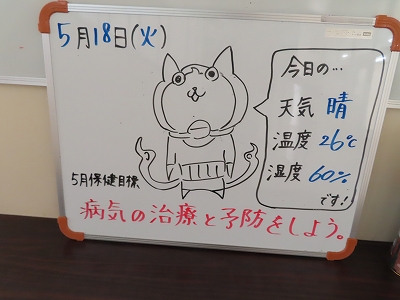 5月18日(火)
今日の…
天気 晴
温度 26℃
湿度 60%
です!
5月保健目標
病気の治療と予防をしよう。